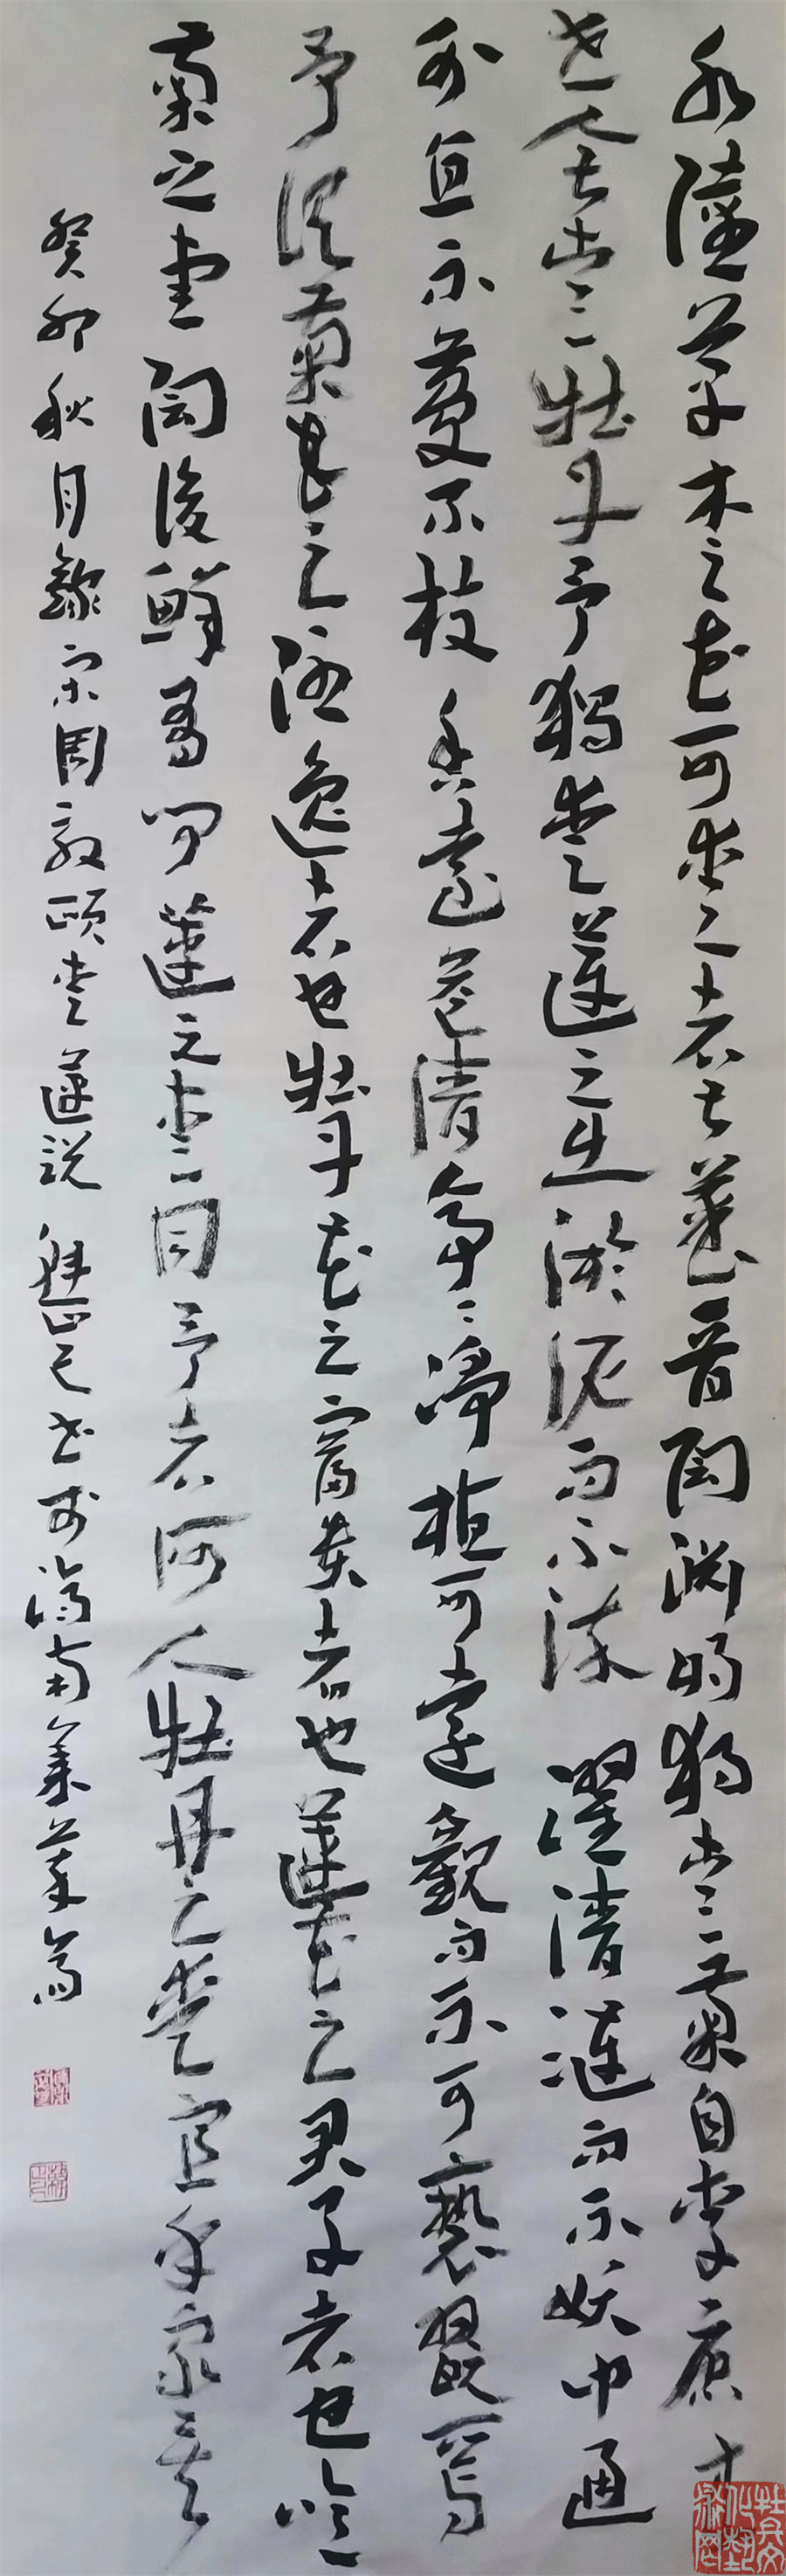 水陸草木之花可愛者甚蕃晉陶淵明獨愛菊自李唐来
世人甚愛牡丹予獨愛蓮之出淤泥而不染濯清漣而不妖中通
外直不蔓不枝香遠益清亭亭淨植可遠觀而不可褻翫焉
予謂菊花之隱逸者也牡丹花之富貴者也蓮花之君子者也噫
菊之愛陶後鮮有聞蓮之愛同予者何人牡丹之愛宜乎衆矣
癸卯秋月錄宋周敦頤愛蓮説 正己書於濟南集萃齋